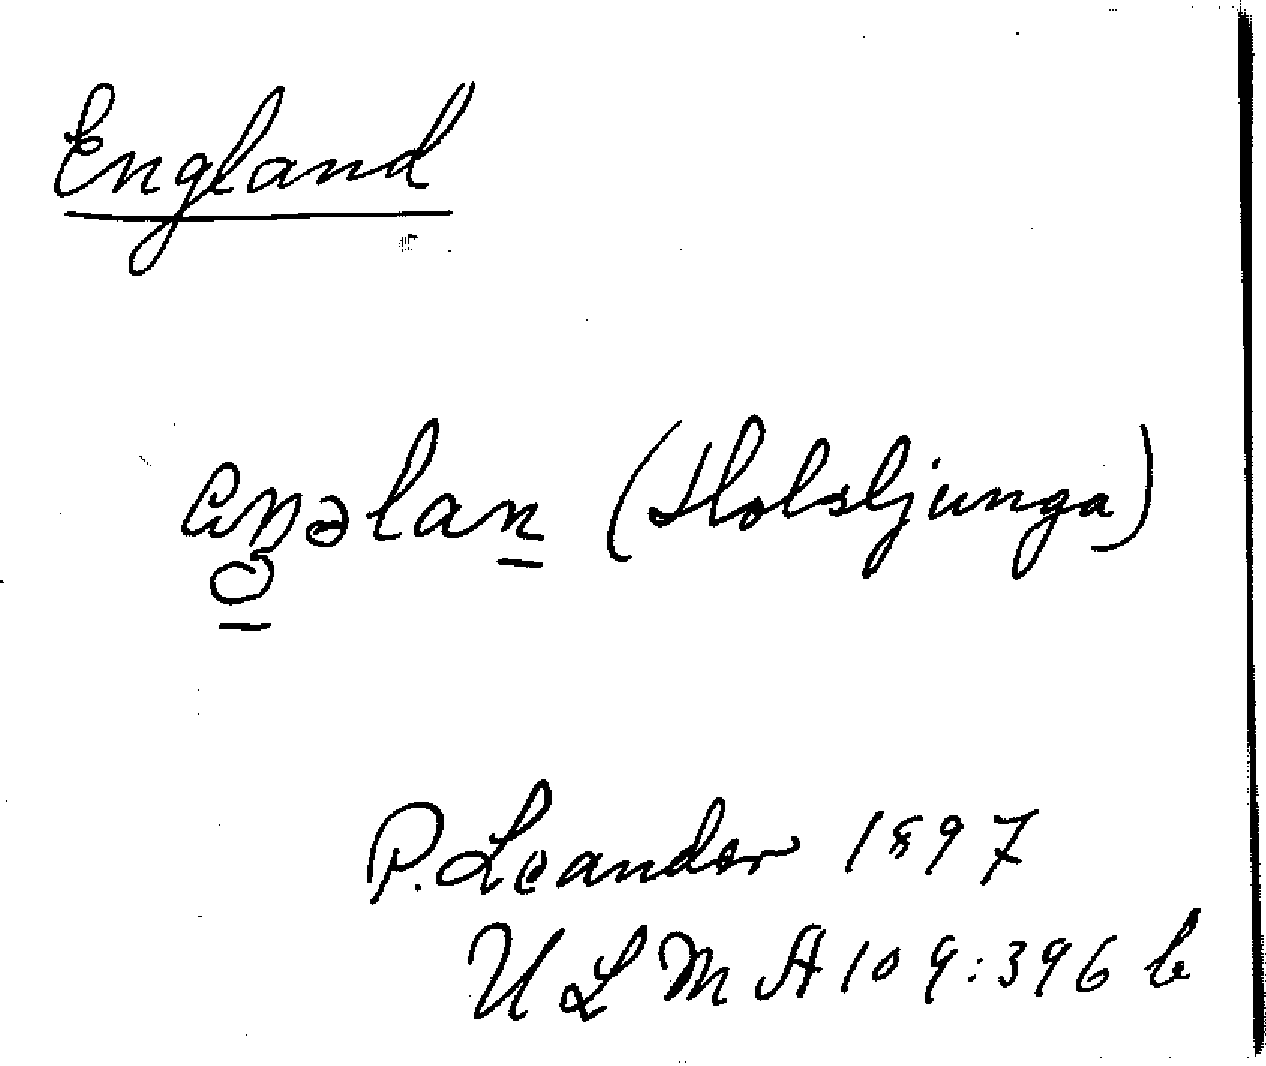 England
aŋəlan (Holsljunga)
P. Leander 1897
ULMA 109:396 b